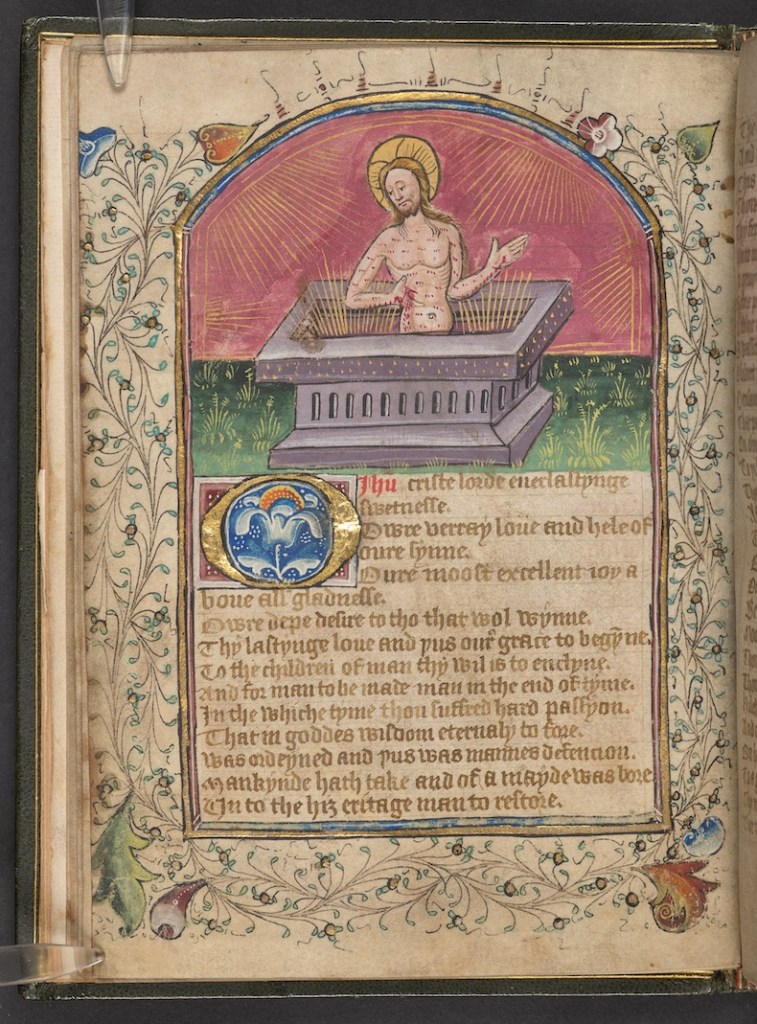 Jhu criste lorde euerlastynge
swetnesse.
Owre verray loue and hele of
oure synne.
Oure moost excellent ioy a
boue all gladnesse.
Owre depe desire to tho that wol wynne.
Thy lastynge loue and þus our grace to begynne.
To the children of man thy wil is to enclyne.
And for man to be made man in the end of tyme.
In the whiche tyme thou suffred hard passyon.
That in goddes wisdom eternaly to fore.
was ordeyned and þus was mannes defencion.
Mankynde hath take and of a mayde was bore
Un to the hiȝ eritage man to restore.